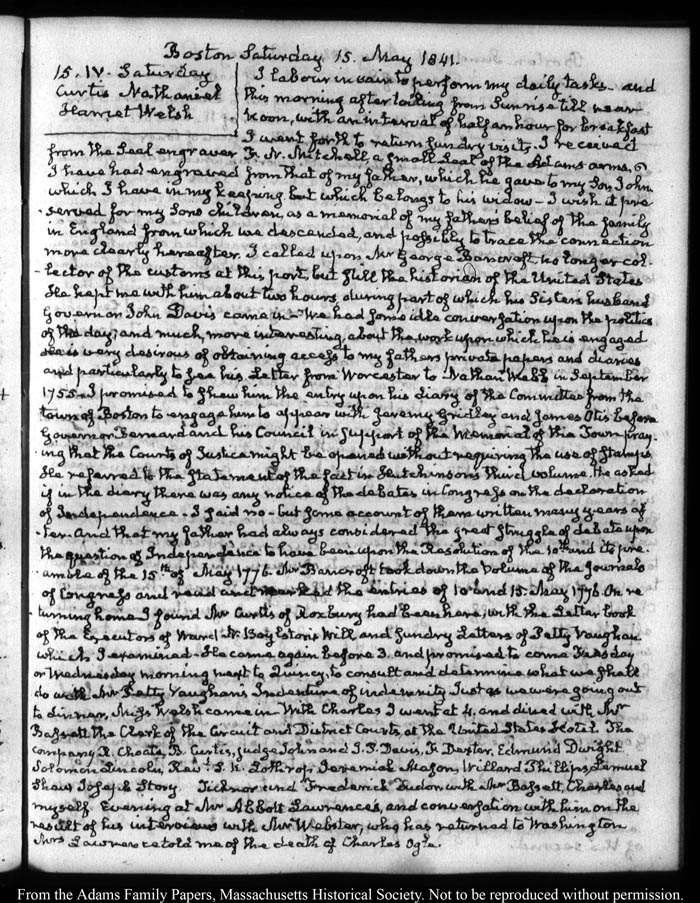 Boston Saturday 15. May 1841.
15. IV. Saturday
Curtis Nathaniel
Harriet Welsh
I labour in vain to perform my daily tasks - and
this morning after toiling from Sunrise till near
Noon, with an interval of half an hour for breakfast
I went forth to return sundry visits. I received
from the Seal engraver F. N. Mitchell, a small Seal of the Adams arms,
I have had engraved from that of my father, which he gave to my Son John
which I have in my keeping but which belongs to his widow - I wish it pre-
served for my Sons children, as a memorial of my father's belief of the family
in England from which we descended, and possibly to trace the connection
more clearly hereafter. I called upon Mr George Bancroft no longer col-
lector of the customs at this port, but still the historian of the United States
He kept me with him about two hours, during part of which his Sisters husband
Governor John Davis came in - We had some idle conversation upon the politics
of the day, and much, more interesting, about the work upon which he is engaged
He is very desirous of obtaining access to my fathers private papers and diaries
and particularly to see his Letter from Worcester to Nathan Webb in September
1755. I promised to shew him the entry upon his diary of the Committee from the
town of Boston to engage him to appear with Jeremy Gridley and James Otis before
Governor Bernard and his Council in support of the Memorial of the Town pray-
ing that the Courts of Justice might be opened without requiring the use of Stamps
He referred to the statement of the fact in Hutchinson's third volume. He asked
if in the diary there was any notice of the debates in Congress on the declaration
of Independence - I said no - but some account of them written many years af-
ter. And that my father had always considered the great struggle of debate upon
the question of Independence to have been upon the Resolution of the 10th and its pre-
amble of the 15th of May 1776. Mr Bancroft took down the Volume of the Journals
of Congress and read and marked the entries of 10 and 15. May 1776. On re
turning home I found Mr Curtis of Roxbury had been here, with the Letter book
of the Executors of Ward N. Boylston's Will and sundry Letters of Petty Vaughan
which I examined - He came again before 3. and promised to come Tuesday
or Wednesday morning next to Quincy, to consult and determine what we shall
do with Mr Petty Vaughan's Indenture of indemnity Just as we were going out
to dinner, Miss Welsh came in With Charles I went at 4. and dined with Mr
Bassett the Clerk of the Circuit and District Courts, at the United States Hotel. The
company R. Choate, B. Curtis, Judge John and I. P. Davis, F. Dexter, Edmund Dwight
Solomon Lincoln, Revd S. K. Lothrop, Jeremiah Mason, Willard Phillips, Lemuel
Shaw, Joseph Story. Ticknor and Frederick Tudor with Mr Bassett, Charles and
myself. Evening at Mr Abbott Lawrence's, and conversation with him on the
result of his interviews with Mr Webster, who has returned to Washington
Mrs Lawrence told me of the death of Charles Ogle.
From the Adams Family Papers, Massachusetts Historical Society. Not to be reproduced without permission.